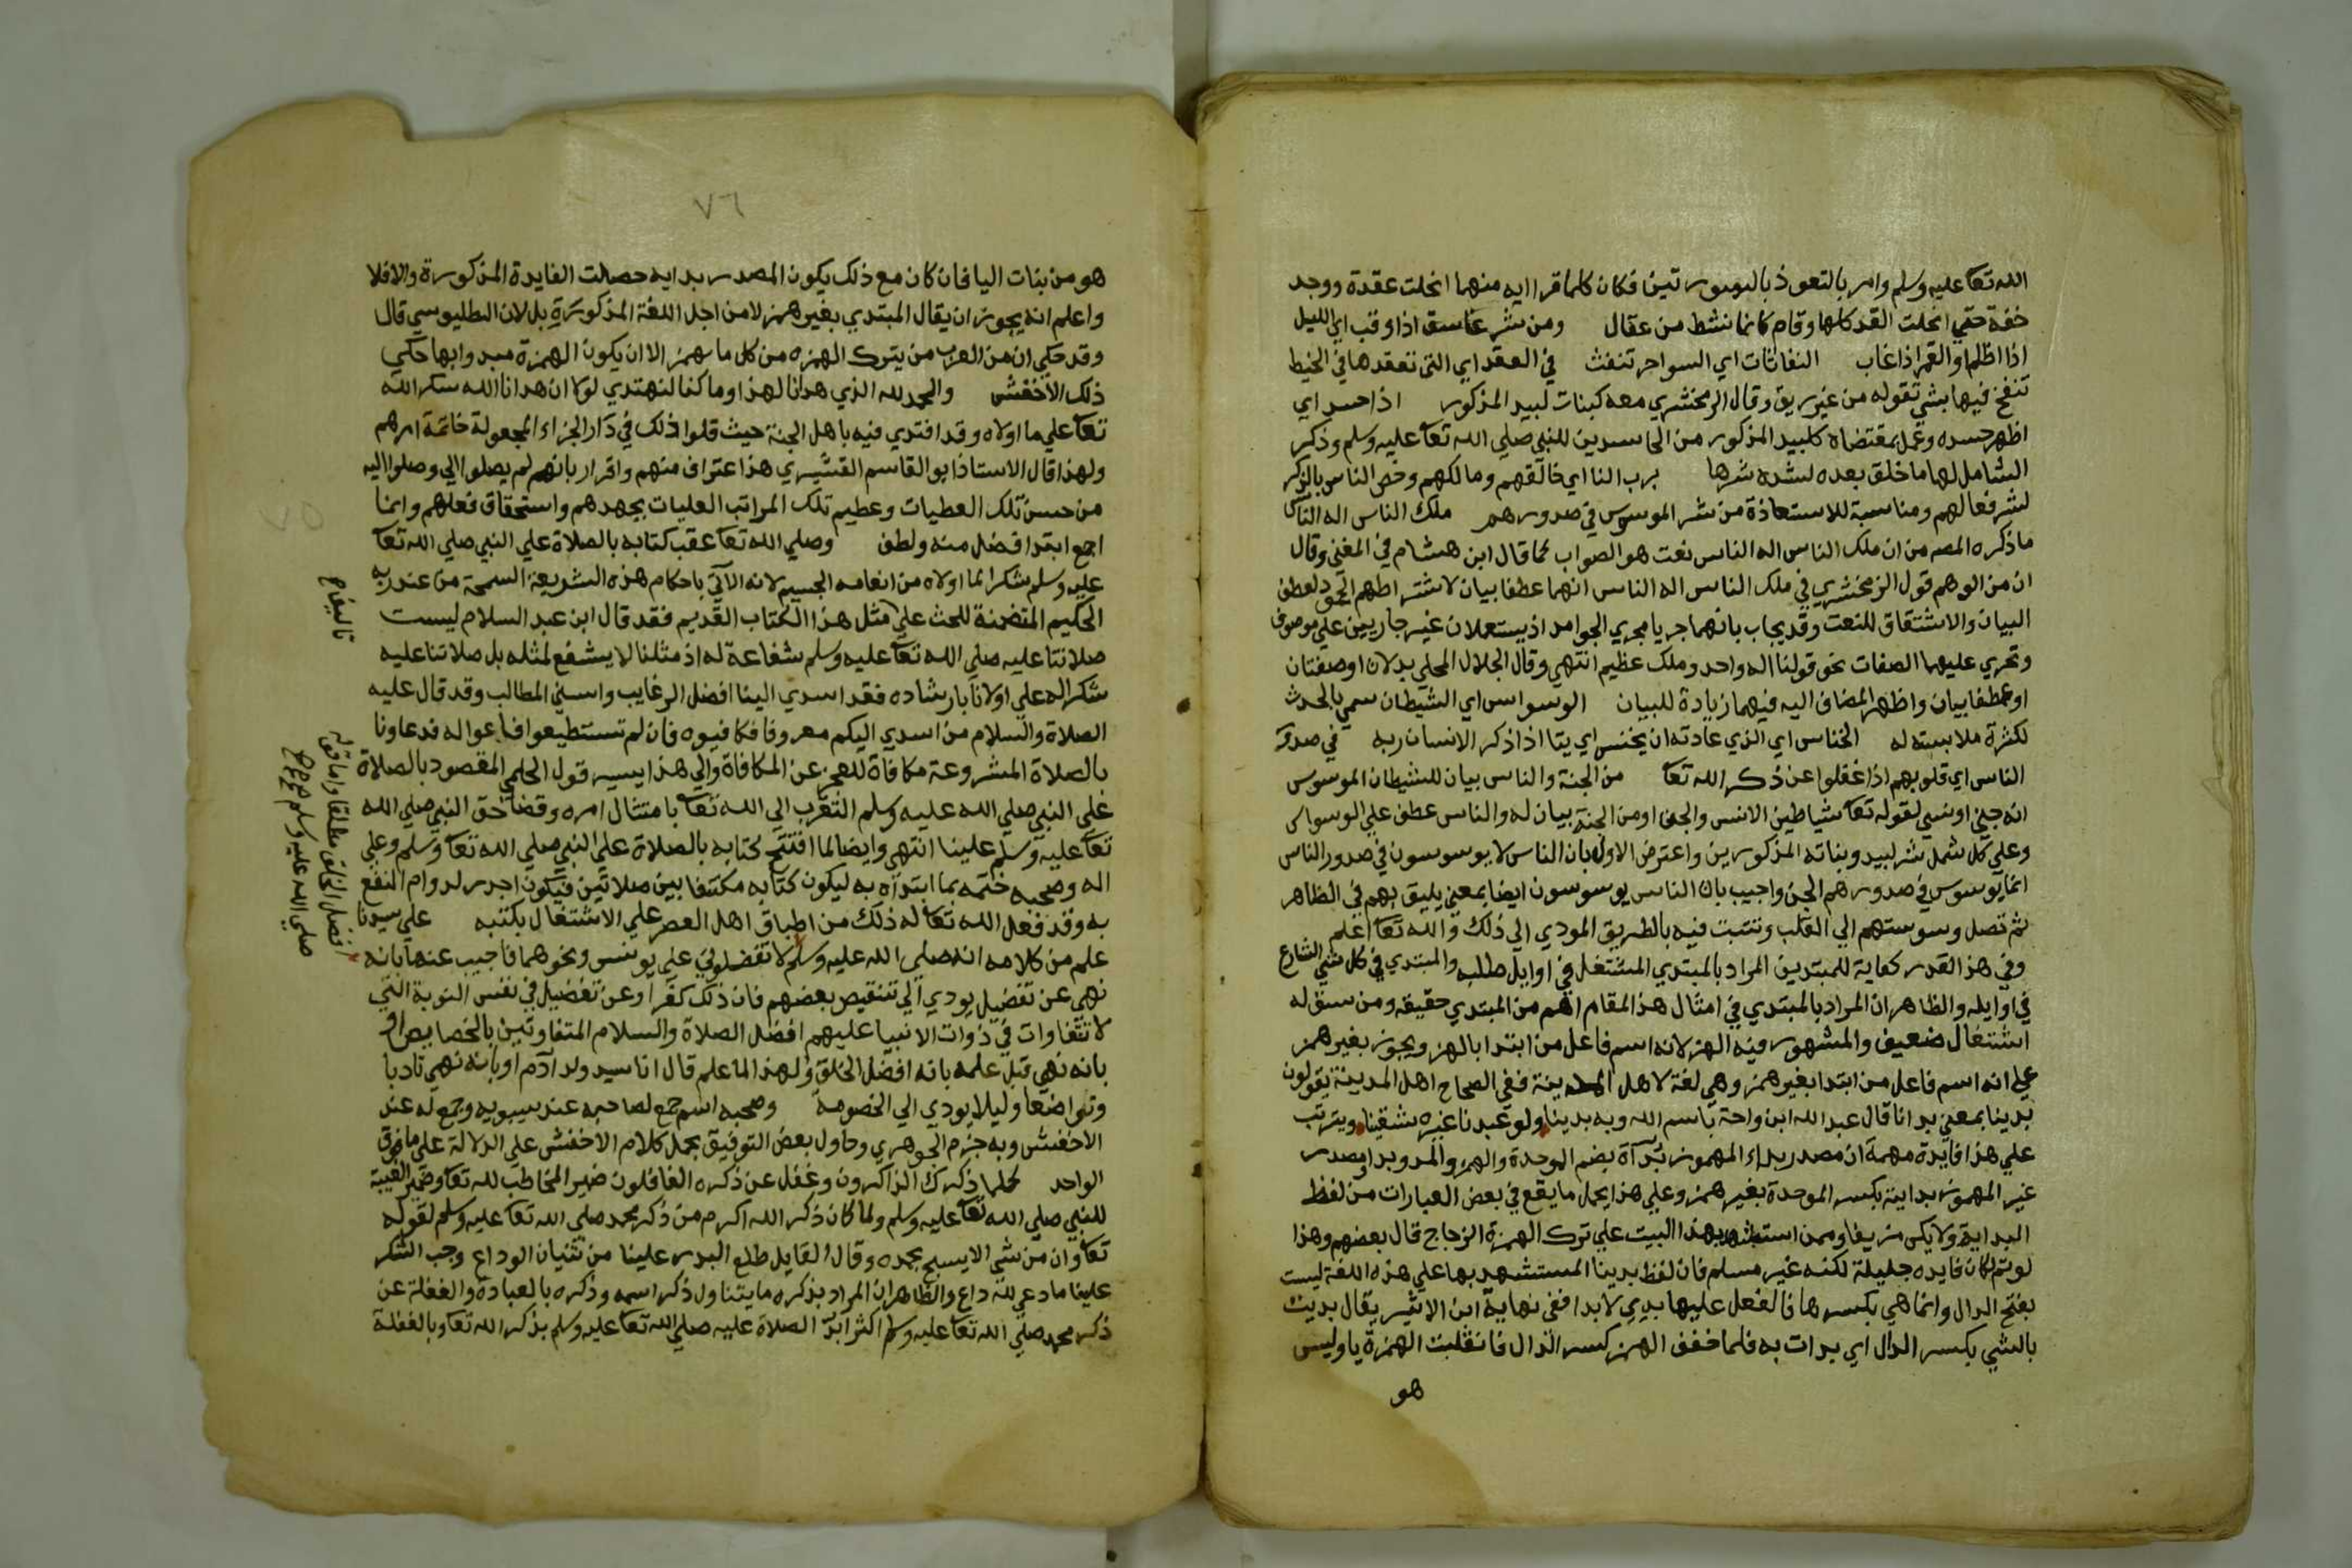 الله تعا عليه وسلم وامر بالتعوذ بالسورتين فكان كلما قرا ايه منهما انحلت عقدة ووجد
خفة حتي انحلت العقد كلها وقام كانما نشط من عقال ومن شر غاسق اذا وقب اي الليل
اذا اظلم او القمر اذا غاب النفاثات اي السواحر تنفث في العقد اي التي تعقدها في الخيط
تنفخ فيها بشي تقوله من غير ريق وقال الزمخشري معه كبنات لبيد المذكور اذا حسد اي
اظهر حسده وعمل بمقتضاه كلبيد المذكور من الحاسدين للنبي صلي الله تعا عليه وسلم وذكر
الشامل لها ما خلق بعده لشدة شرها برب النا اي خالقهم ومالكهم وخص الناس بالذكر
لشرفعا لهم ومناسبة للاستعاذة من شر الموسوس في صدورهم ملك الناس اله الناس
ماذكره المصه من ان ملك الناس اله الناس نعت هو الصواب كما قال ابن هشام في المغني وقال
ان من الوهم قول الزمخشري في ملك الناس اله الناس انهما عطفا بيان لاشتراطهم الجمود لعطف
البيان والاشتقاق للنعت وقد يجاب بانهما جريا مجري الجوامد اذ يستعملان غير جاريين علي موصوف
وتجري عليهما الصفات نحو قولنا اله واحد وملك عظيم انتهي وقال الجلال المحلي بدلان او صفتان
او عطفا بيان واظهر المضاف اليه فيهما زيادة للبيان الوسواس اي الشيطان سمي بالحدث
لكثرة ملابسته له الخناس اي الذي عادته ان يخنس اي يتا اذا ذكر الانسان ربه في صدور
الناس اي قلوبهم اذا غفلوا عن ذكر الله تعا من الجنة والناس بيان للشيطان الموسوس
انه جني او نسي لقوله تعا شياطين الانس والجن او من الجنة بيان له والناس عطف علي الوسواس
وعلي كل شمل شر لبيد وبناته المذكورين واعترض الاول بان الناس لا يوسوسون في صدور الناس
انما يوسوس في صدورهم الجن واجيب بان الناس يوسوسون ايضا بمعني يليق بهم في الظاهر
ثم تصل وسوستهم الي القلب وتثبت فيه بالطريق المودي الي ذلك والله تعا اعلم
وفي هذا القدر كفاية للمبتدين المراد بالمبتدي المشتغل في اوايل طلبه والمبتدي في كل شي الشارع
في اوايله والظاهر ان المراد بالمبتدي في امثال هذا المقام اهم من المبتدي حقيقه ومن سبق له
اشتغال ضعيف والمشهور فيه الهمز لانه اسم فاعل من ابتدا بالهمز ويجوز بغير همز
علي انه اسم فاعل من ابتدا بغير همز وهي لغة لاهل المدينة ففي الصحاح اهل المدينة يقولون
بدينا بمعني بدانا قال عبد الله ابن واحة باسم الله وبه بدينا ولو عبدنا غيره شقينا ويترتب
علي هذا فايدة مهمة ان مصدر بداء المهموز بدآة بضم الموحدة والهمز والمد وبدا ومصدر
غير المهموز بداية بكسر الموحدة بغير همز وعلي هذا يحمل ما يقع في بعض العبارات من لفظ
البداية ولا يكن مزيفا وممن استشهد بهذا البيت علي ترك الهمزة الزجاج قال بعضهم وهذا
لو تم لكان فايده جليلة لكنه غير مسلم فان لفظ بدينا المستشهد بها علي هذه اللغة ليست
بفتح الدال وانما هي بكسرها فالفعل عليها بدي لا بدا ففي نهاية ابن الاثير يقال بديت
بالشي بكسر الدال اي بدات به فلما خفف الهمز كسر الدال فانقلبت الهمزة يا وليس
هو
٧٦
هو من بنات اليا فان كان مع ذلك يكون المصدر بدايه حصلت الفايدة المذكورة والا فلا
واعلم انه يجوز ان يقال المبتدي بغير همز لا من اجل اللغة المذكورة بل لان البطليوسي قال
وقد حكي ان من العرب من يترك الهمزه من كل ما يهمز الا ان يكون الهمزة مبدوا بها حكي
ذلك الاخفش والحمد لله الذي هدانا لهذا وما كنا لنهتدي لولا ان هدانا الله شكر الله
تعا علي ما اولاه وقد افتدي فيه باهل الجنة حيث قلوا ذلك في دار الجزاء المجعولة خاتمة امرهم
ولهذا قال الاستاذ ابو القاسم القشيري هذا اعتراف منهم واقرار بانهم لم يصلوا الي وصلوا اليه
من حسن تلك العطيات وعظيم تلك المراتب العليات بجهدهم واستحقاق فعلهم وانما
اجمع ابتدا فضل منه ولطف وصلي الله تعا عقب كتابه بالصلاة علي النبي صلي الله تعا
عليه وسلم شكرا لما اولاه من انعامه الجسيم لانه الآتي باحكام هذه الشريعة السمحة من عند ربه
الحكيم المتضمنة للحث علي مثل هذا الكتاب القديم فقد قال ابن عبد السلام ليست
صلاتنا عليه صلي الله تعا عليه وسلم شفاعة له اذ مثلنا لا يشفع لمثله بل صلاتنا عليه
شكرا له علي اولانا بارشاده فقد اسدي الينا افضل الرغايب واسني المطالب وقد قال عليه
الصلاة والسلام من اسدي اليكم معروفا فكافيوه فان لم تستطيعوا فادعوا له فدعاونا
بالصلاة المشروعة مكافاة للعجز عن المكافاة والي هذا يسير قول الحلمي المقصود بالصلاة
علي النبي صلي الله عليه وسلم التقرب الي الله تعا بامتثال امره وقضا حق النبي صلي الله
تعا عليه وسلم علينا انتهي وايضا لما افتتح كتابه بالصلاة علي النبي صلي الله تعا وسلم وعلي
اله وصحبه ختمه بما ابتدآه به ليكون كتابه مكتنفا بين صلاتين فيكون اجدر لدوام النفع
به وقد فعل الله تعا له ذلك من اطباق اهل العصر علي الاشتغال بكتبه علي سيدنا
علم من كلامه انه صلي الله عليه وسلم لا تفضلوني علي يونس ونحوهما فاجيب عنها بانه
نهي عن تفضيل يودي الي تنقيص بعضهم فان ذلك كفرا وعن تفضيل في نفس النوبة التي
لا تتفاوات في ذوات الانبيا عليهم افضل الصلاة والسلام المتفاوتين بالخصايص او
بانه نهي قبل علمه بانه افضل الخلق ولهذا لما علم قال انا سيد ولد آدم او بانه نهي تادبا
وتواضعا وليلا يودي الي الخصومة وصحبه اسم جمع لصاحبه عند سيبويه وجمع له عند
الاخفش وبه جزم الجوهري وحاول بعض التوفيق بحمل كلام الاخفش علي الدلالة علي ما فوق
الواحد كلما ذكرك الذاكرون وغفل عن ذكره الغافلون ضير المخاطب لله تعا وضمير الغيبة
للنبي صلي الله تعا عليه وسلم ولما كان ذكر الله اكرم من ذكر محمد صلي الله تعا عليه وسلم لقوله
تعا وان من شي الا يسبح بحمده وقال القايل طلع البدر علينا من ثنيان الوداع وجب الشكر
علينا ما دعي لله داع والظاهر ان المراد بذكره ما يتناول ذكر اسمه وذكره بالعبادة والغفلة عن
ذكر محمد صلي الله تعا عليه وسلم اكثر ابد الصلاة عليه صلي الله تعا عليه وسلم بذكر الله تعا وبالغفلة
٧٥
افضل الخلق مطلقا واما قوله
صلي الله عليه وسلم